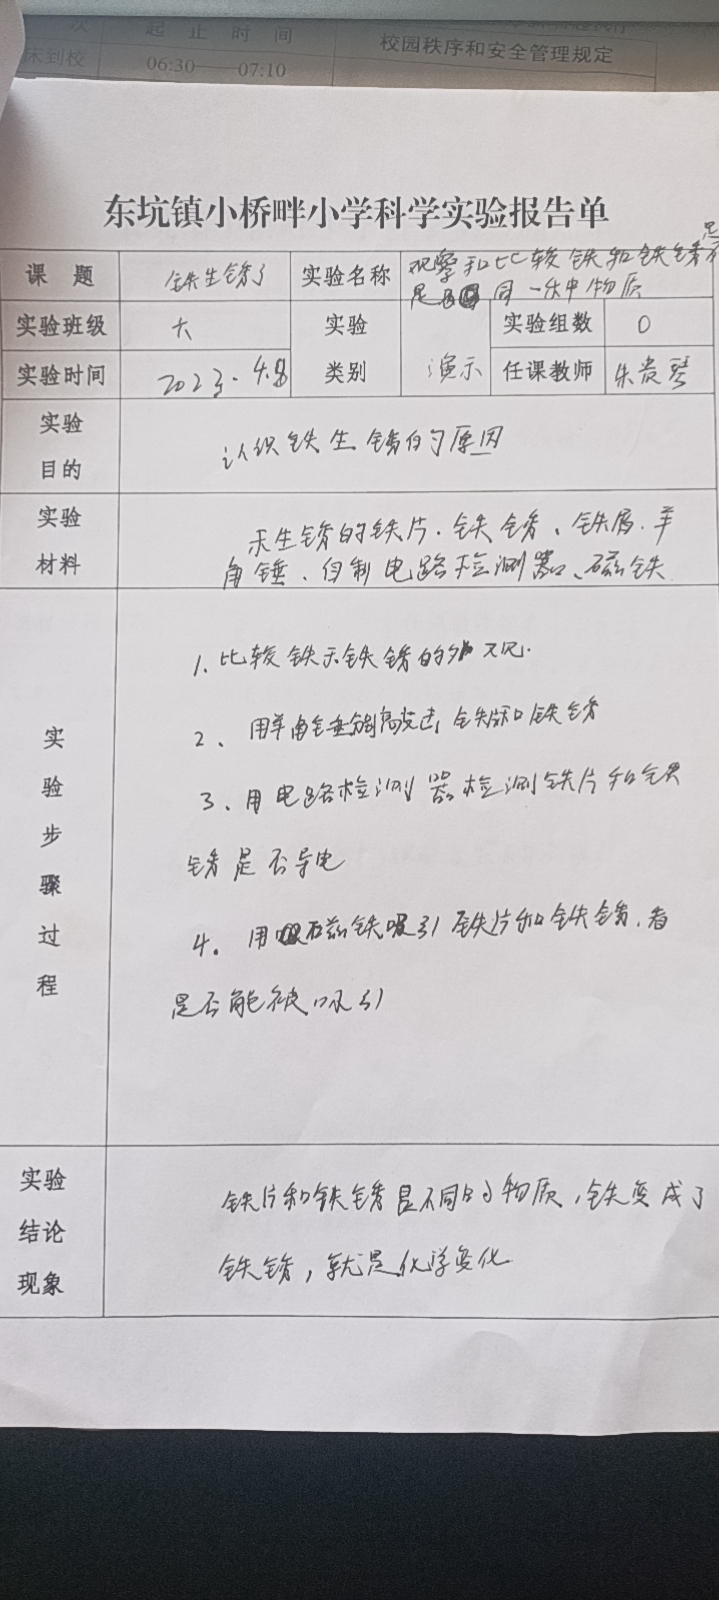 次 起止时间
床到校 06:30——07:10 校园秩序和安全管理规定
东坑镇小桥畔小学科学实验报告单
课题 铁生锈了 实验名称 观察和比较铁和铁锈是不
是同一种物质
实验班级 六 实验 实验组数 0
实验时间 2023.4.8 类别 演示 任课教师 朱贵琴
实验
目的 认识铁生锈的原因
实验 未生锈的铁片、铁锈、铁屑、羊
材料 角锤、自制电路检测器、磁铁
实验步骤过程
1、比较铁和铁锈的外观.
2、用羊角锤分别敲击铁片和铁锈
3、用电路检测器检测铁片和铁
锈是否导电
4. 用磁铁吸引铁片和铁锈,看
是否能被吸引
实验 铁片和铁锈是不同的物质,铁变成了
结论 铁锈,就是化学变化
现象